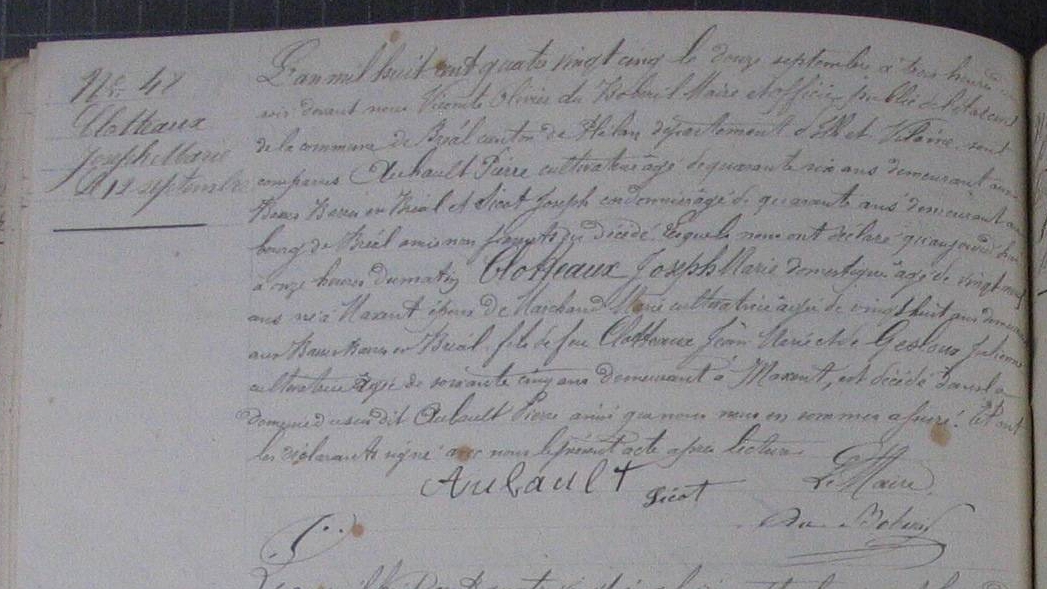 No 48
Clotteaux
Joseph Marie
Le 12 septembre
L'an mil huit cent quatre vingt cinq le douze septembre à trois heures du
soir devant nous Vicomte Olivier du Boberil Maire et officier public de l'état civil
de la commune de Bréal canton de Plélan département d'Ille et Vilaine, sont
comparus Aubault Pierre cultivateur âgé de quarante six ans demeurant aux
Basses Barres en Bréal et Sicot Joseph cordonnier âgé de quarante ans demeurant au
bourg de Bréal amis non parents du décédé. Lesquels nous ont déclaré qu'aujourd'hui
à onze heures du matin Clotteaux Joseph Marie domestique âgé de vingt neuf
ans né à Maxent époux de Marchand Marie cultivatrice âgée de vingt huit ans demeurant
aux Basses Barres en Bréal, fils de feu Clotteaux Jean Marie et de Gesloux Julienne
cultivatrice âgée de soixante cinq ans demeurant à Maxent, est décédé dans la
demeure du susdit Aubault Pierre ainsi que nous nous en sommes assuré. Et ont
les déclarants signé avec nous le présent acte après lecture
Aubault Sicot Le Maire
du Boberil